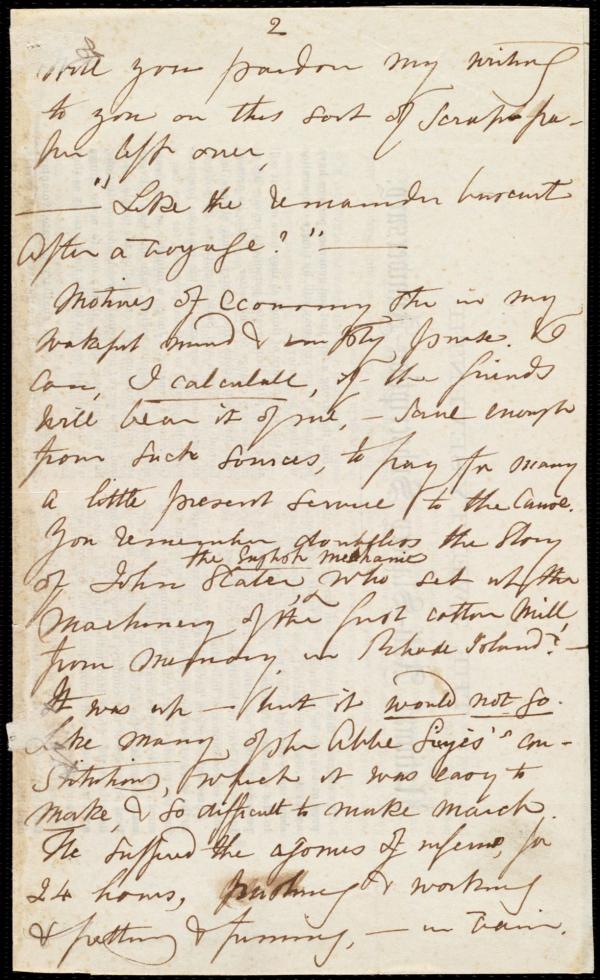 2
Will you pardon my writing
to you on this sort of scrap pa-
per left over,
— "Like the remainder biscuit
After a voyage?" —
Motives of Economy, stir in my
wakeful mind & empty purse. &
can, I calculate, if the friends
will bear it of me, — save enough
from such sources, to pay for many
a little present service to the Cause.
You remember doubtless the story
of John Slater, the English mechanic, who set up the
Machinery of the first cotton Mill,
from Memory in Rhode Island? —
It was up — but it would not go.
Like many of the Abbe Sieyès' con-
stitutions, which it was easy to
make, & so difficult to make march.
He suffered the agonies of inferno, for
24 hours, pushing & working
& fretting & fuming, — in vain.